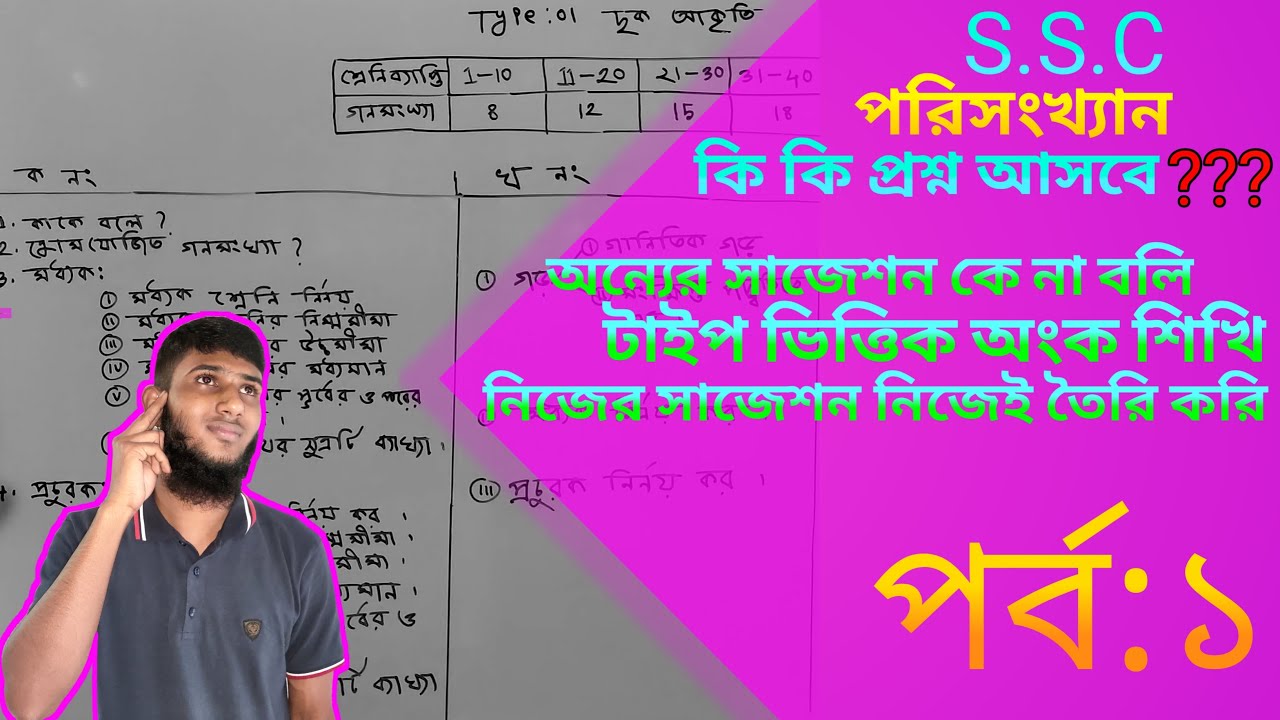 Type: 01 ছক আকৃতি
শ্রেনিব্যাপ্তি 1-10 11-20 21-30 31-40
গনসংখ্যা 8 12 15 18
ক নং
খ নং
1. কাকে বলে ?
2. ক্রোমযোজিত গনসংখ্যা ?
3. মধ্যক:
i মধ্যক শ্রেনি নির্নয়
ii নিম্নসীমা
iii উচ্চসীমা
iv মধ্যমান
v পূর্বের ও পরের
সূত্রটি ব্যাখ্যা ।
4. প্রচুরক
নির্নয় কর ।
সীমা ।
সীমা ।
মান ।
র্বের ও
টি ব্যাখ্যা
i গানিতিক গড়
i গড়
iii প্রচুরক নির্নয় কর ।
S.S.C
পরিসংখ্যান
কি কি প্রশ্ন আসবে ???
অন্যের সাজেশন কে না বলি
টাইপ ভিত্তিক অংক শিখি
নিজের সাজেশন নিজেই তৈরি করি
পর্ব:১